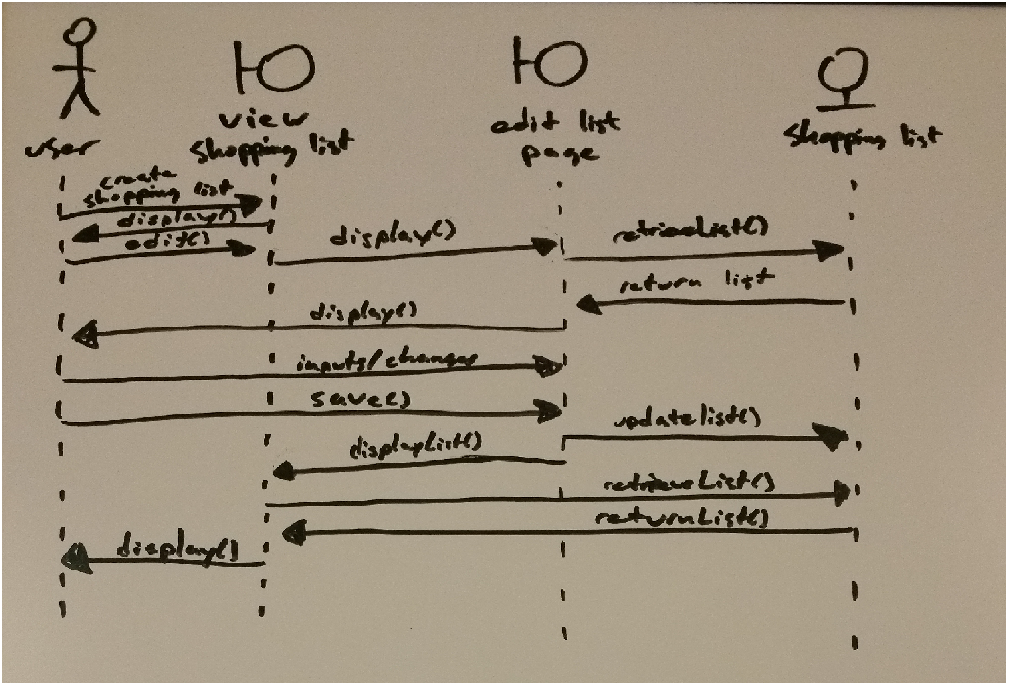 user
view
shopping list
edit list
page
shopping list
create
shopping list
display()
edit()
display()
retrieveList()
return list
display()
inputs/changes
save()
updatelist()
displayList()
retrieveList()
returnList()
display()